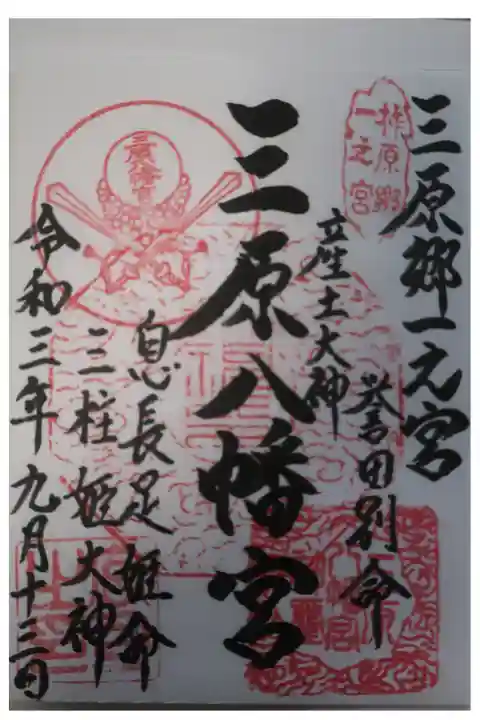 三原郷一之宮
誉田別命
立産土大神
三原八幡宮
息長足姫命
三柱姫大神
令和三年九月十三日
一之宮
三原八幡宮